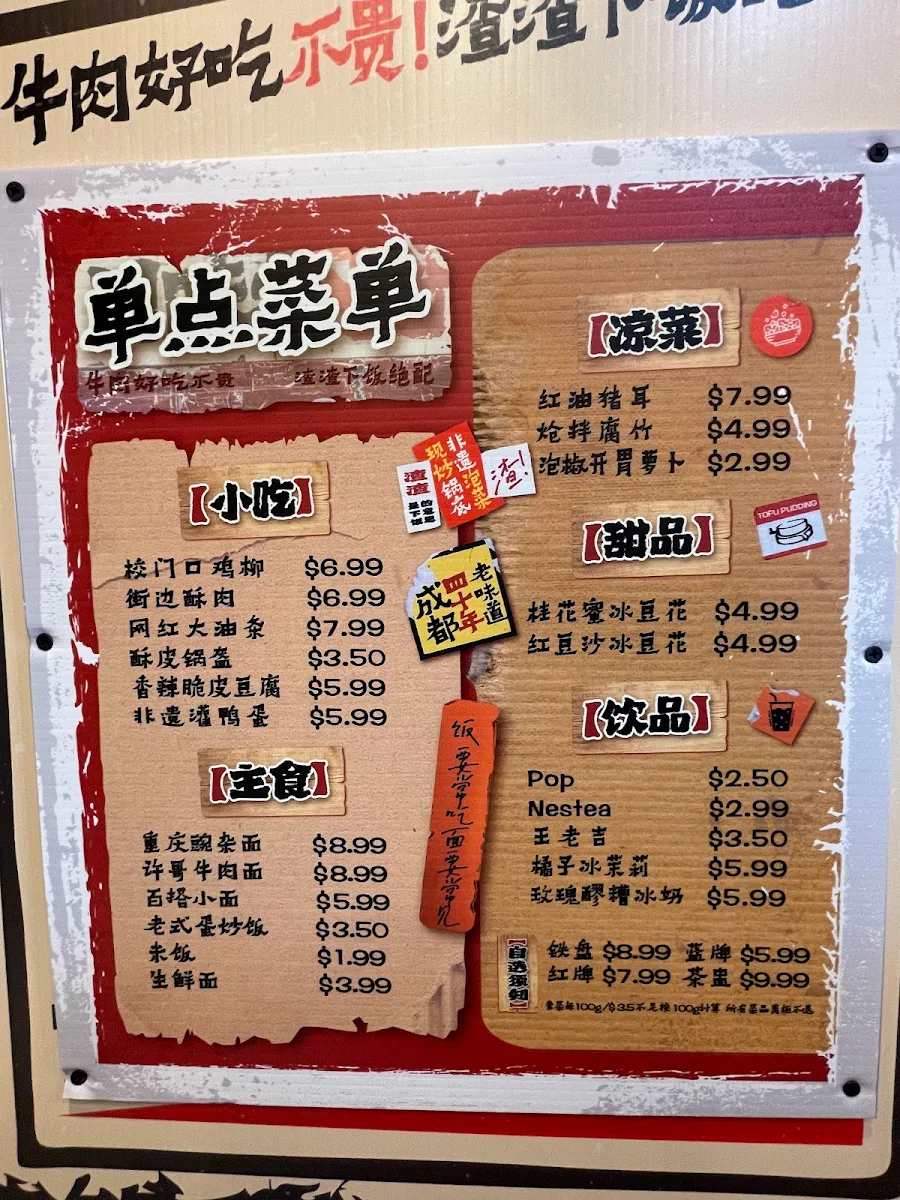 牛肉好吃不贵!渣渣下饭
单点菜单
牛肉好吃不贵 渣渣下饭绝配
【小吃】
校门口鸡柳 $6.99
街边酥肉 $6.99
网红大油条 $7.99
酥皮锅盔 $3.50
香辣脆皮豆腐 $5.99
非遗灌鸭蛋 $5.99
【主食】
重庆豌杂面 $8.99
许哥牛肉面 $8.99
百搭小面 $5.99
老式蛋炒饭 $3.50
米饭 $1.99
生鲜面 $3.99
渣渣
非遗泡菜
现炒锅底
渣!
老味道
四十年
成都
饭要常吃面要常见
【凉菜】
红油猪耳 $7.99
炝拌腐竹 $4.99
泡椒开胃萝卜 $2.99
【甜品】
TOFU PUDDING
桂花蜜冰豆花 $4.99
红豆沙冰豆花 $4.99
【饮品】
Pop $2.50
Nestea $2.99
王老吉 $3.50
橘子冰茉莉 $5.99
玫瑰醪糟冰奶 $5.99
【自选须知】
铁盘 $8.99 蓝牌 $5.99
红牌 $7.99 茶盅 $9.99
荤菜每100g/$3.5不足按100g计算 所有菜品离柜不退